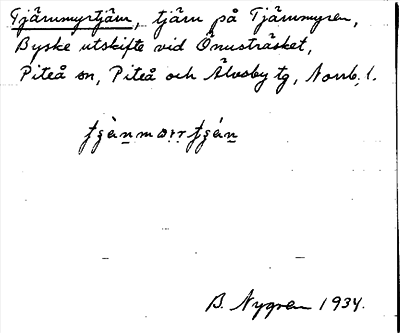 Tjärnmyrtjärn, tjärn på Tjärnmyren,
Byske utskifte vid Önusträsket,
Piteå sn, Piteå och Älvsby tg, Norrb. l.
B. Nygren 1934.